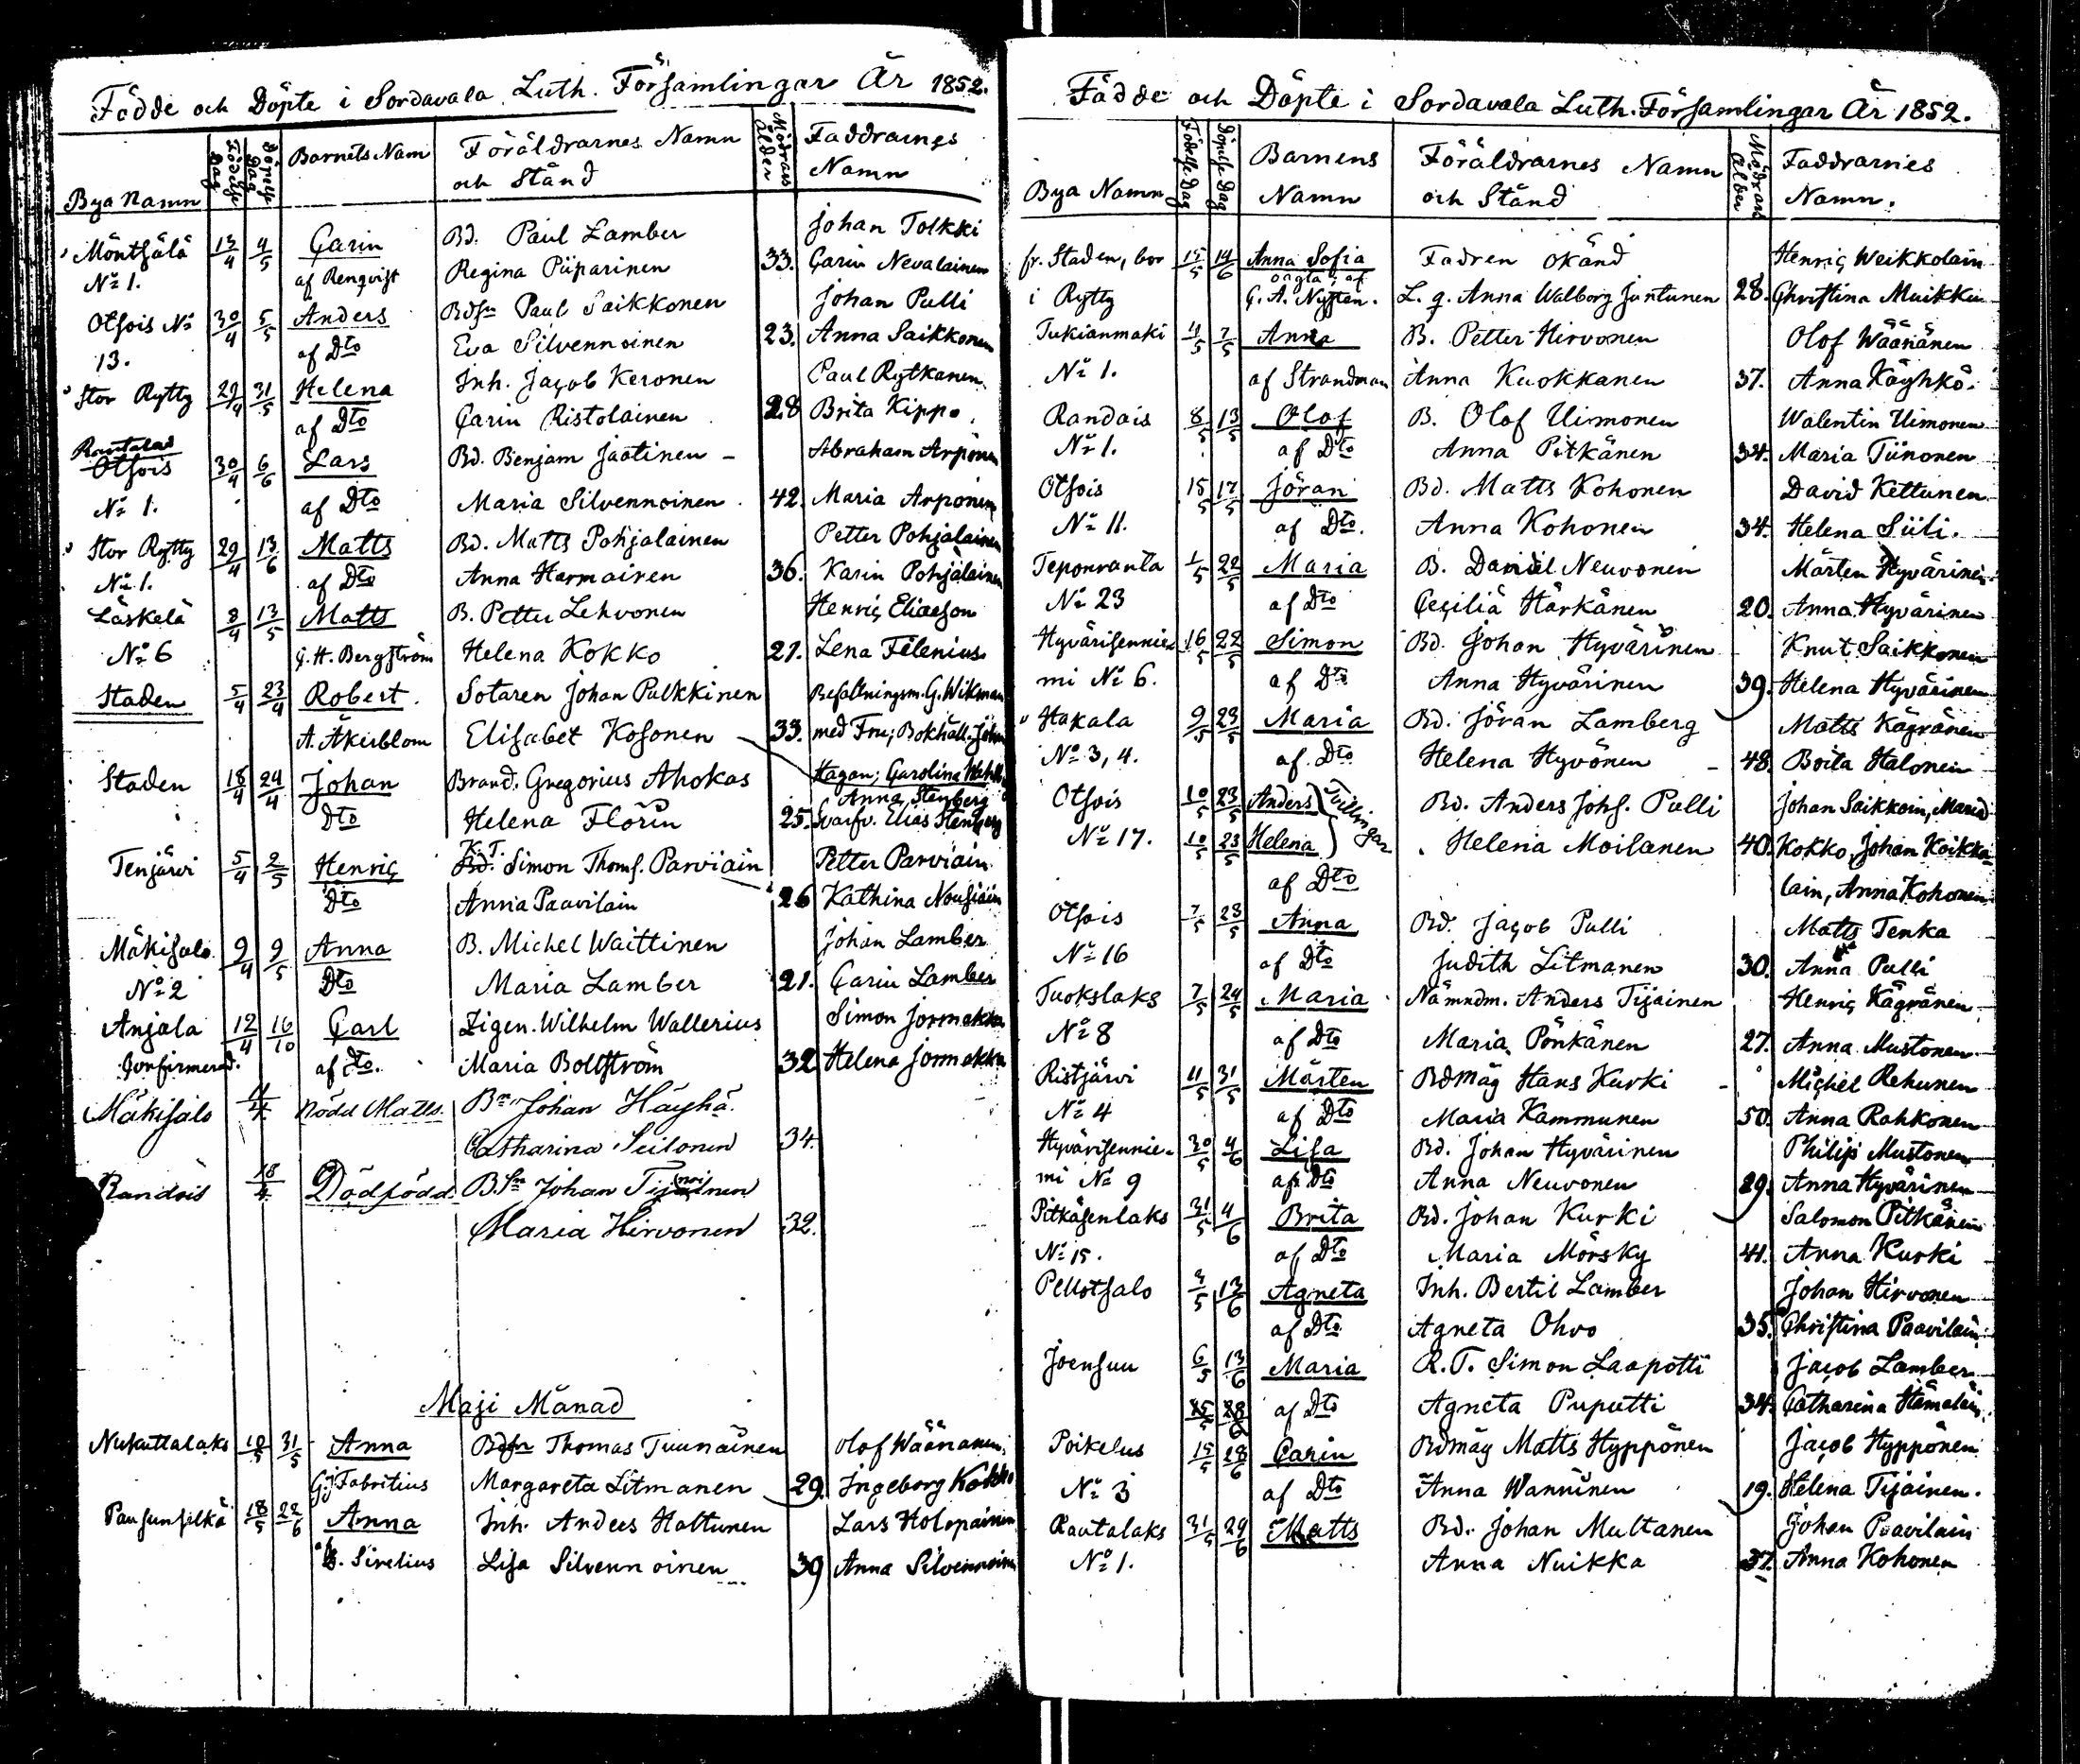 Födde och Döpte i Sordavala Luth. Församlingar År 1852.
Bya Namn Födelse Dag Döpelse Dag Barnets Namn Föräldrarnes Namn och Stånd Modrars Ålder Faddrarnes Namn
Möntsälä 13/4 4/5 Carin Bd. Paul Lamber Johan Tolkki
No 1. af Renqvist Regina Piiparinen 33. Carin Nevalainen
Otsois No 30/4 5/5 Anders Bdsn Paul Saikkonen Johan Pulli
13. af Dto Eva Silvennoinen 23. Anna Saikkonen
Stor Rytty 29/4 31/5 Helena Inh. Jacob Keronen Paul Rytkänen
af Dto Carin Ristolainen 28 Brita Kippo.
Rautalax
Otsois 30/4 6/6 Lars Bd. Benjam Jaatinen - Abraham Arponen
No 1. af Dto Maria Silvennoinen 42. Maria Arponen
Stor Rytty 29/4 13/6 Matts Bd. Matts Pohjalainen Petter Pohjalainen
No 1. af Dto Anna Harmainen 36. Karin Pohjalainen
Läskelä 8/4 13/5 Matts B. Petter Lehvonen Henric Eliaeson
No 6 G. H. Bergström Helena Kokko 21. Lena Filenius
Staden 5/4 23/4 Robert Sotaren Johan Pulkkinen Befaltningsm. G. Wikman
A. Åkerblom Elisabet Kosonen 33. med Fru; Bokhåll.
Staden 18/4 24/4 Johan Brand. Gregorius Ahokas Hagan; Carolina
Anna Stenberg
Dto Helena Florin 25. Svarfv. Elias Stenberg
K. T.
Tenjärvi 5/4 2/5 Henric Bd. Simon Thoms. Parviain Petter Parviain
Dto Anna Paavilain 26 Kathina Nousiain
Mäkisalo 9/4 9/5 Anna B. Michel Waittinen Johan Lamber
No 2 Dto Maria Lamber 21. Carin Lamber
Anjala 12/4 16/10 Carl Zigen. Wilhelm Wallerius Simon Jormakka
Confirmerad. af Dto. Maria Boltström 32 Helena Jormakka
Mäkisalo nödd Matts. Bn Johan Häyhä.
Catharina Seilonen 34.
Randois 18/4 Dödfödd. B. Sn Johan Tijainen
Maria Hirvonen 32.
Maji Månad
Nukuttalaks 10/5 31/5 Anna Bdsn Thomas Tuunainen Olof Wäänänen
G. j Fabritius Margareta Litmanen 29. Ingeborg
Pausunselkä 18/5 22/6 Anna Inh. Anders Hattunen Lars Holopainen
af Sirelius Lisa Silvennoinen 39 Anna Silvennoinen
Födde och Döpte i Sordavala Luth. Församlingar År 1852.
Bya Namn Födelse Dag Döpelse Dag Barnens Namn Föräldrarnes Namn och Stånd Modrars Ålder Faddrarnes Namn.
fr. Staden, bor 15/5 14/6 Anna Sofia Fadren okänd Henric Weikkolain
oägta; af
i Rytty G. A. Nysten. L. q. Anna Walborg Juntunen 28. Christina Muikku
Tukianmäki 4/5 7/5 Anna B. Petter Hirvonen Olof Wäänänen
No 1. af Strandman Anna Kuokkanen 37. Anna Käyhkö.
Randais 8/5 13/5 Olof B. Olof Uimonen Walentin Uimonen
No 1. af Dto Anna Pitkänen 34. Maria Tiinonen
Otsois 15/5 17/5 Jöran Bd. Matts Kohonen David Kettunen
No 11. af Dto. Anna Kohonen 34. Helena Siili.
Teponranta 1/5 22/5 Maria B. Daniel Neuvonen Mårten Hyvärinen
No 23 af Dto Cecilia Härkänen 20. Anna Hyvärinen
Hyvärisennie- 16/5 22/5 Simon Bd. Johan Hyvärinen Knut Saikkonen
mi No 6. af Dto Anna Hyvärinen 39. Helena Hyvärinen
Hakala 9/5 23/5 Maria Bd. Jöran Lamberg Matts Kägränen
No 3, 4. af Dto Helena Hyvönen 48. Brita Halonen
Otsois 10/5 23/5 Anders Tvillingar Bd. Anders Johs. Pulli Johan Saikkoin, Maria
No 17. 10/5 23/5 Helena Helena Moilanen 40. Kokko, Johan Koikka
af Dto lain, Anna Kohonen
Otsois 7/5 23/5 Anna Bd. Jacob Pulli Matts Tenka
No 16 af Dto Judith Litmanen 30. Anna Pulli
Tuokslaks 7/5 24/5 Maria Nämndm. Anders Tijainen Henric Kägränen
No 8 af Dto Maria Pönkänen 27. Anna Mustonen
Ristjärvi 11/5 31/5 Mårten Bdmåg Hans Kurki Michel Rehunen
No 4 af Dto Maria Kammunen 50. Anna Rahkonen
Hyvärisennie- 30/5 4/6 Lisa Bd. Johan Hyvärinen Philip Mustonen
mi No 9 af Dto Anna Neuvonen 29. Anna Hyvärinen
Pitkäsenlaks 31/5 4/6 Brita Bd. Johan Kurki Salomon Pitkänen
No 15. af Dto Maria Mörsky 41. Anna Kurki
Pellotsalo 3/5 13/6 Agneta Inh. Bertil Lamber Johan Hirvonen
af Dto Agneta Ohvo 35. Christina Paavilain
Joensuu 6/5 13/6 Maria R. T. Simon Laapotti Jacob Lamber
af Dto Agneta Puputti 34. Catharina Hämäläin.
Poikelus 15/5 28/6 Carin Bdmåg Matts Hyppönen Jacob Hyppönen
No 3 af Dto Anna Wänninen 19. Helena Tijainen.
Rautalaks 31/5 29/6 Matts Bd. Johan Multanen Johan Paavilain
No 1. Anna Nuikka 37. Anna Kohonen